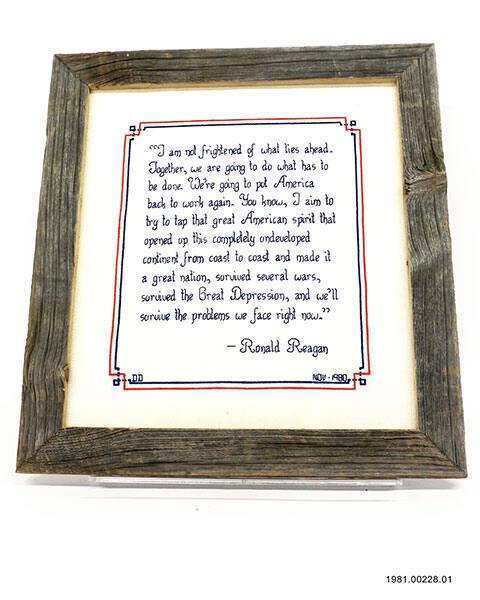 "I am not frightened of what lies ahead.
Together, we are going to do what has to
be done. We're going to put America
back to work again. You know, I aim to
try to tap that great American spirit that
opened up this completely undeveloped
continent from coast to coast and made it
a great nation, survived several wars,
survived the Great Depression, and we'll
survive the problems we face right now."
— Ronald Reagan
DD NOV - 1980
1981.00228.01